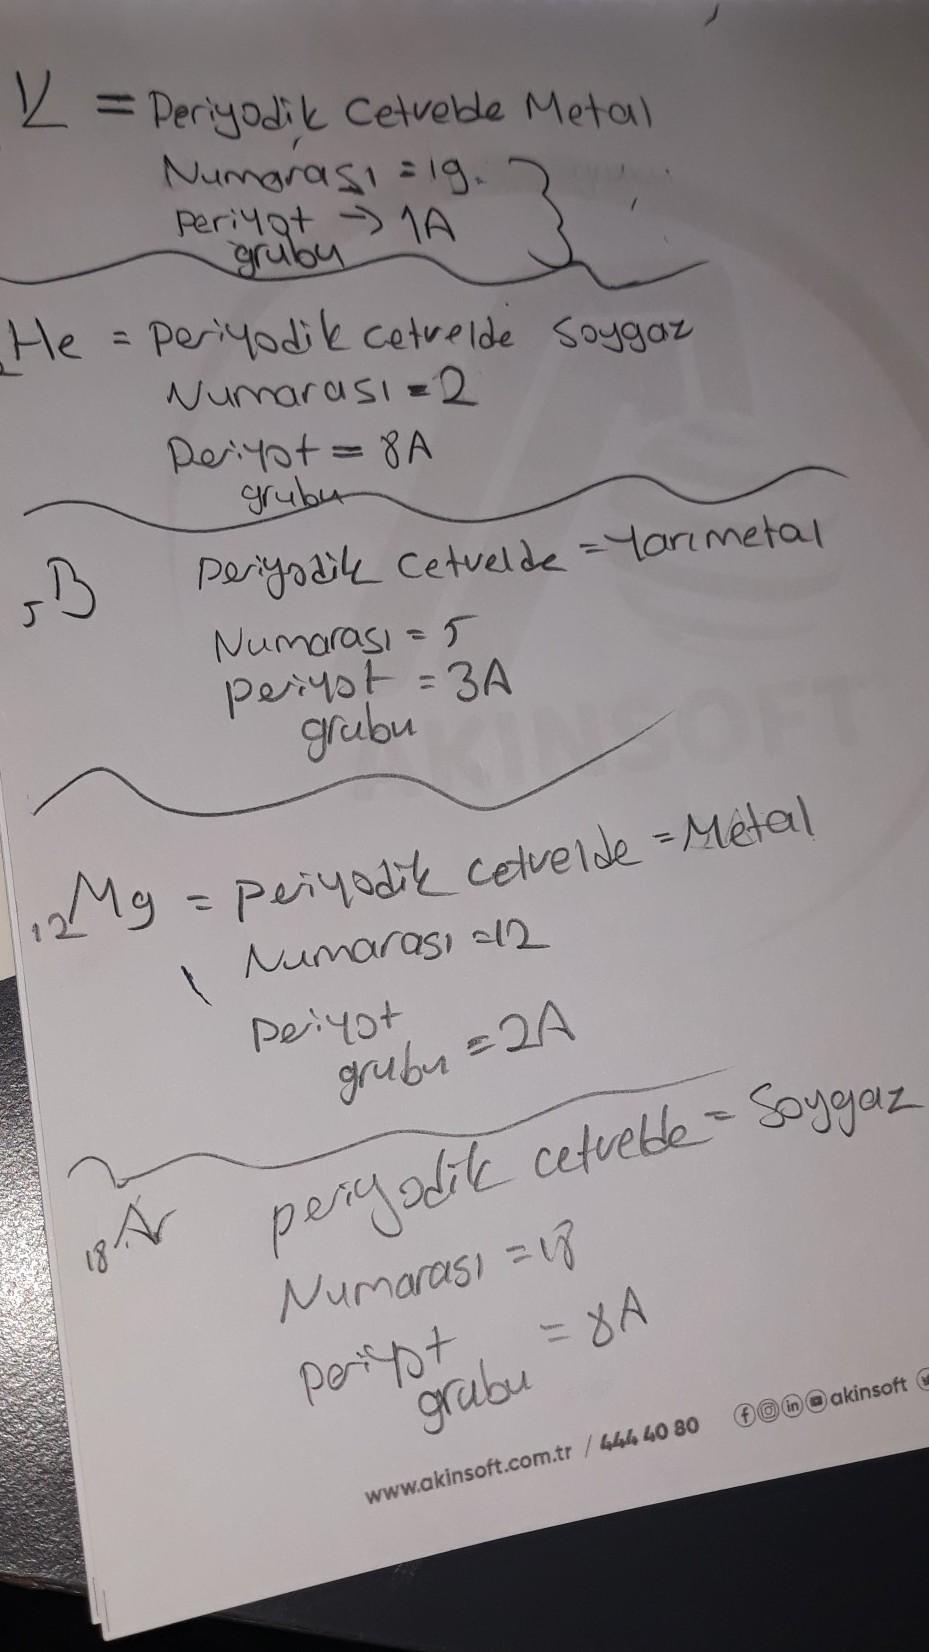 K = Periyodik Cetvelde Metal
Numarası = 19.
Periyot → 1A
grubu
2He = Periyodik cetvelde Soygaz
Numarası = 2
Periyot = 8A
grubu
5B Periyodik Cetvelde = Yarımetal
Numarası = 5
Periyot = 3A
grubu
AKINSOFT
12Mg = Periyodik cetvelde = Metal
Numarası = 12
Periyot
grubu = 2A
18Ar periyodik cetvelde = Soygaz
Numarası = 18
Periyot = 8A
grubu
www.akinsoft.com.tr / 444 40 80 akinsoft